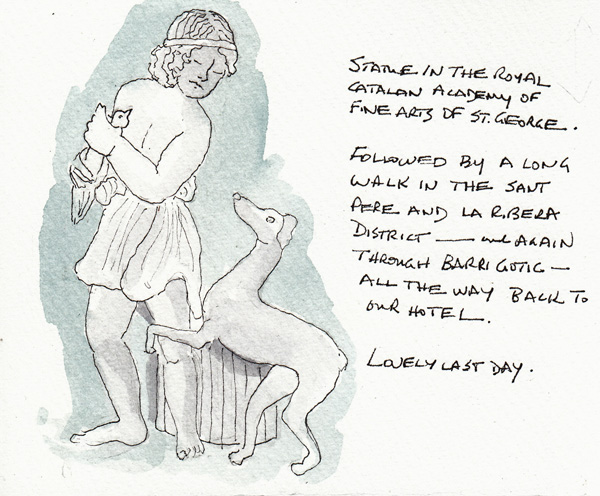 STATUE IN THE ROYAL
CATALAN ACADEMY OF
FINE ARTS OF ST. GEORGE.
FOLLOWED BY A LONG
WALK IN THE SANT
PERE AND LA RIBERA
DISTRICT — and AGAIN
THROUGH BARRI GOTIC —
ALL THE WAY BACK TO
OUR HOTEL.
LOVELY LAST DAY.